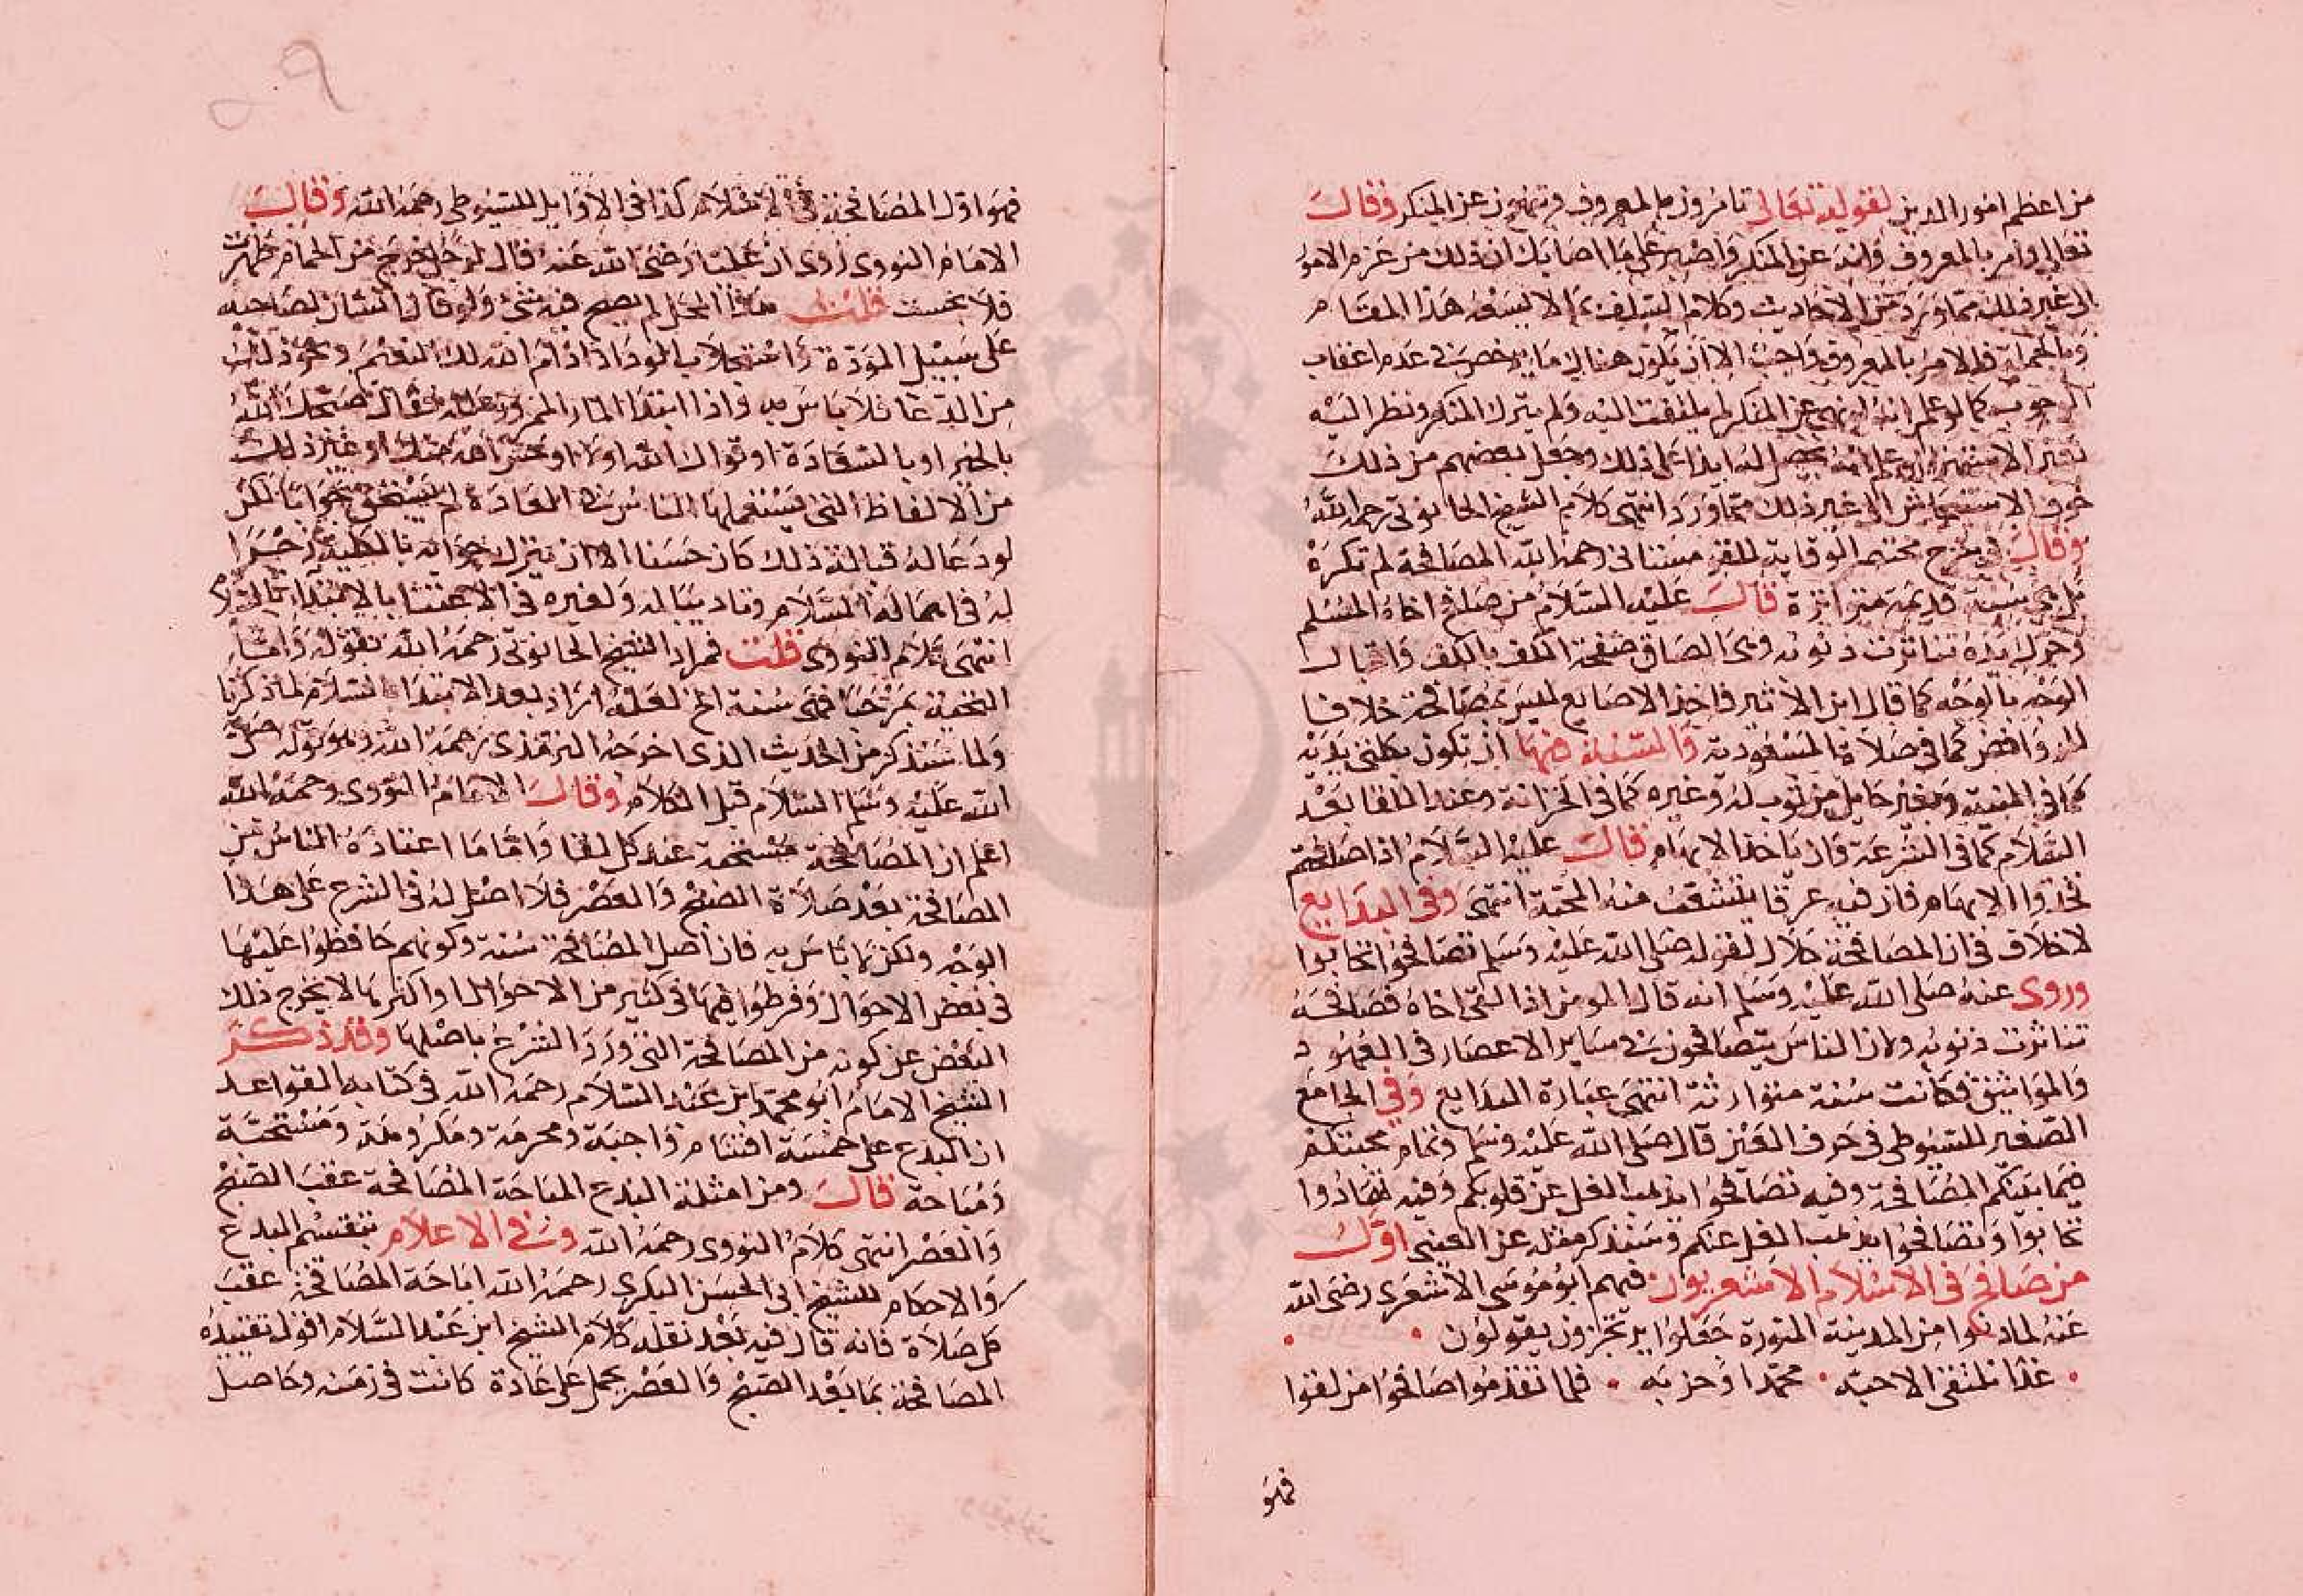 من اعظم امور الدين لقوله تعالى تامرون بالمعروف وتنهون عن المنكر وقال
تعالى وامر بالمعروف وانه عن المنكر واصبر على ما اصابك ان ذلك من عزم الامور
الى غير ذلك مما ورد من الاحاديث وكلام السلف الا يسعه هذا المقام
وبالجملة فالامر بالمعروف واجب الا ان يكون هناك ما يرخص في عدم اعقاب
الوجوب كما لو علم انه لو نهى عن المنكر لم يلتفت اليه ولم يترك المنكر ونظر اليه
الاستهزاء او علم انه يحصل له ايذاء على ذلك وجعل بعضهم من ذلك
خوف الاستيحاش الى غير ذلك مما ورد انتهى كلام الشيخ الحانوتي رحمه الله
وقال في شرح مختصر الوقاية للقهستاني رحمه الله المصافحة لم تكره
بل هي سنة قديمة متواترة قال عليه السلام من صافح اخاه المسلم
وحرك يده تناثرت ذنوبه وهى الصاق صفحة الكف بالكف واقبال
الوجه بالوجه كما قال ابن الاثير فاخذ الاصابع ليس بمصافحة خلافا
للروافض كما في صلاة المسعودية والسنة فيها ان تكون بكلتى يديه
كما في المنية وبغير حايل من ثوب له وغيره كما في الخزانة وعند اللقا بعد
السلام كما في الشرعة وان ياخذ الابهام قال عليه السلام اذا صافحتم
فخذوا الابهام فان فيه عرقا ينشعب منه المحبة انتهى وفي البدايع
لا خلاف في ان المصافحة حلال لقوله صلى الله عليه وسلم تصافحوا تحابوا
وروى عنه صلى الله عليه وسلم انه قال المومن اذا لقى اخاه فصافحه
تناثرت ذنوبه ولان الناس يتصافحون في ساير الاعصار في العهود
والمواثيق فكانت سنة متوارثة انتهى عبارة البدايع وفي الجامع
الصغير للسيوطى في حرف قال صلى الله عليه وسلم وتمام محيتكم
فيما بينكم المصافحة وفيه تصافحوا يذهب الغل عن قلوبكم وفيه تهادوا
تحابوا وتصافحوا يذهب الغل عنكم وسنذكر مثله عن العينى اول
من صافح في الاسلام الاشعريون فيهم ابو موسى الاشعرى رضى الله
عنه لما دنوا من المدينة المنورة جعلوا يرتجزون يقولون
غدا نلتقى الاحبه محمدا وحزبه فلما تقدموا صافحوا من لقوا
فهو
فهو اول المصافحة في الاسلام كذا في الاوايل للسيوطى رحمه الله وقال
الامام النووى روى ان عليا رضى الله عنه قال لرجل خرج من الحمام طهرت
فلا نجست قلت هذا المحل لم يصح فيه شئ ولو قال انسان لصاحبه
على سبيل المودة واستجلاب الوداد ادام الله لك النعيم ونحو ذلك
من الدعا فلا باس به واذا ابتدا المار الممرور عليه فقال صبحك الله
بالخير او بالسعادة او قواك الله اولا اوحش الله منك او غير ذلك
من الالفاظ التى يستعملها الناس في العادة لم يستحق جوابا لكن
لو دعا له قبالة ذلك كان حسنا الا ان يترك جوابه بالكلية زجرا
له في اهماله السلام وتاديبا له ولغيره في الاعتنا بالابتداء بالسلام
انتهى كلام النووى قلت فمراد الشيخ الحانوتى رحمه الله بقوله واما
التحية بمرحبا فهى سنة الخ لعله اراد بعد الابتداء بالسلام لما ذكرنا
ولما سنذكر من الحديث الذى اخرجه الترمذى رحمه الله وهو قوله صلى
الله عليه وسلم السلام قبل الكلام وقال الامام النووى رحمه الله
اعلم ان المصافحة مستحبة عند كل لقا واما ما اعتاده الناس من
المصافحة بعد صلاة الصبح والعصر فلا اصل له في الشرع على هذا
الوجه ولكن لا باس به فان اصل المصافحة سنة وكونهم حافظوا عليها
في بعض الاحوال وفرطوا فيها في كثير من الاحوال او اكثرها لا يخرج ذلك
البعض عن كونه من المصافحة التى ورد الشرع باصلها وقد ذكر
الشيخ الامام ابو محمد ابن عبد السلام رحمه الله في كتابه القواعد
ان البدع على خمسة اقسام واجبة ومحرمة ومكروهة ومستحبة
ومباحة قال ومن امثلة البدع المباحة المصافحة عقب الصبح
والعصر انتهى كلام النووى رحمه الله وفي الاعلام بتقسيم البدع
والاحكام للشيخ ابى الحسن البكرى رحمه الله اباحة المصافحة عقب
كل صلاة فانه قال فيه بعد نقله كلام الشيخ ابن عبد السلام اقول تقييده
المصافحة بما بعد الصبح والعصر يحمل على عادة كانت في زمنه وحاصل